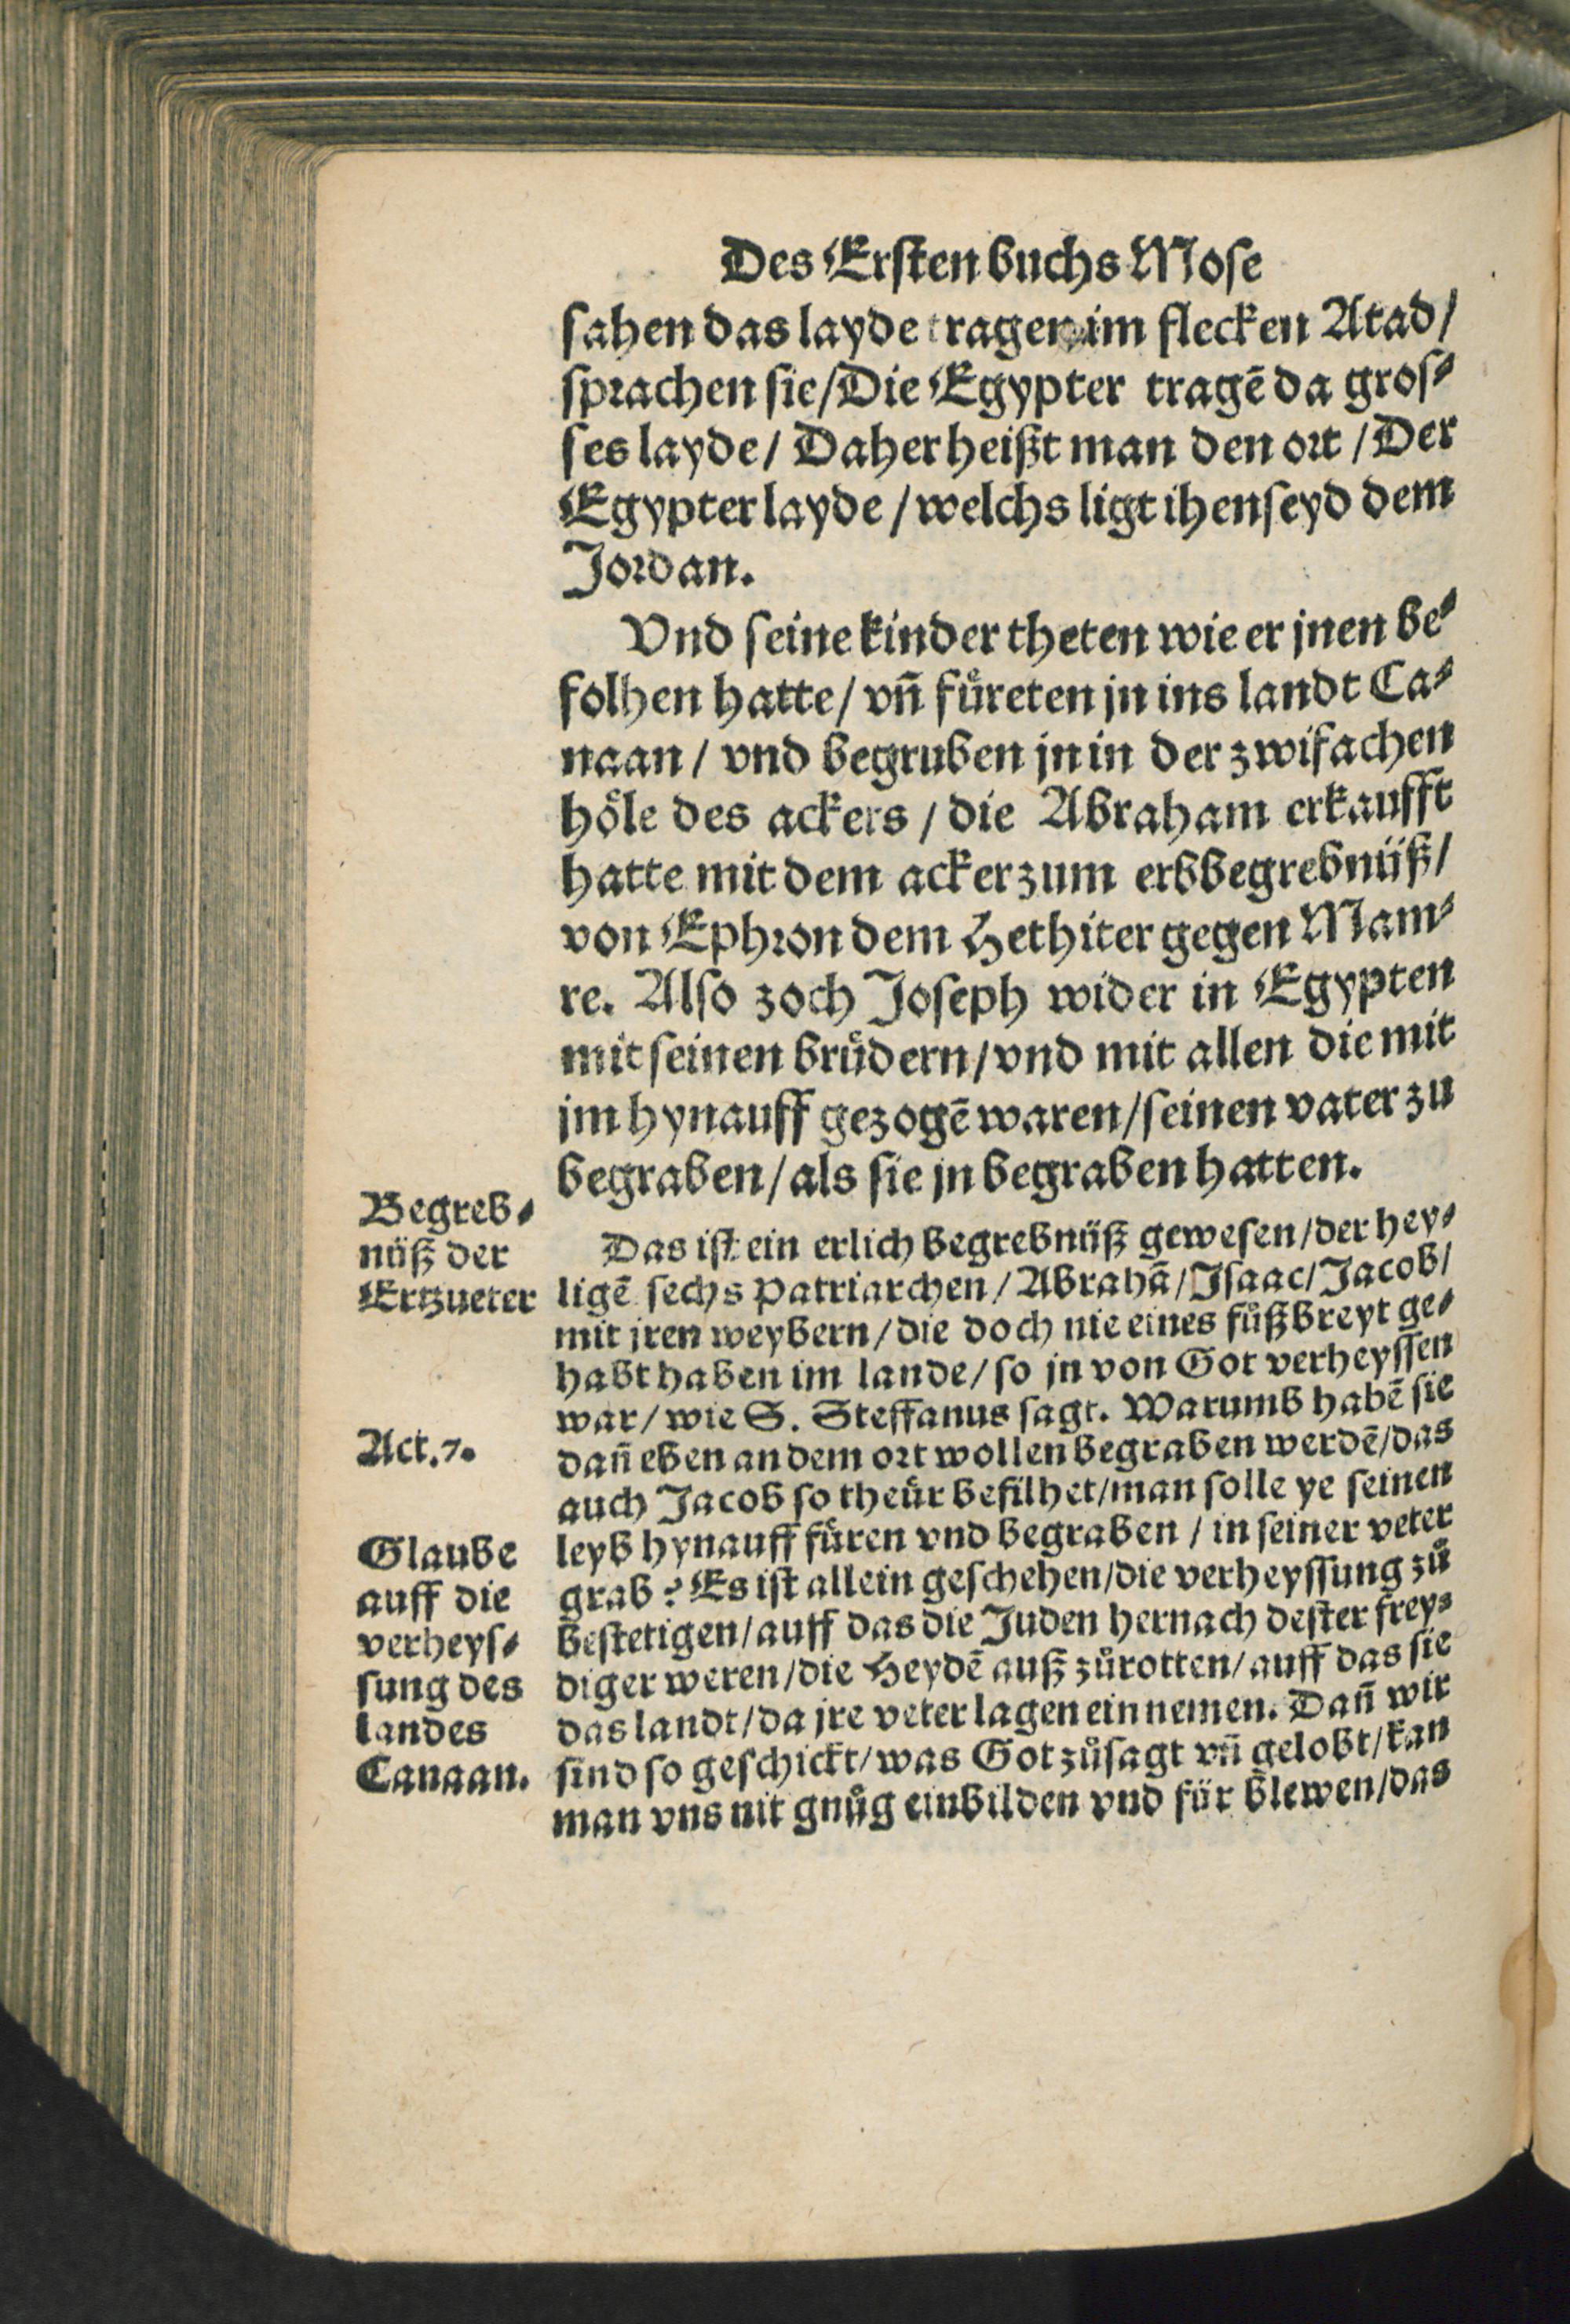 Des Ersten buchs Mose
sahen das layde tragen im flecken Atad/
sprachen sie/Die Egypter tragē da gros⸗
ses layde/ Daher heißt man den ort /Der
Egypter layde /welchs ligt ihenseyd dem
Jordan.
Vnd seine kinder theten wie er jnen be⸗
folhen hatte/ vn̄ fuͤreten jn ins landt Ca⸗
naan / vnd begruben jn in der zwifachen
hoͤle des ackers / die Abraham erkaufft
hatte mit dem acker zum erbbegrebnüß/
von Ephron dem Hethiter gegen Mam⸗
re. Also zoch Joseph wider in Egypten
mit seinen bruͤdern/vnd mit allen die mit
jm hynauff gezogē waren/seinen vater zu
begraben/als sie jn begraben hatten.
Begreb⸗
nüß der
Ertzueter
Das ist ein erlich begrebnüß gewesen/der hey⸗
ligē sechs Patriarchen/ Abrahā/Isaac/Jacob/
mit jren weybern/die doch nie eines fuͤßbreyt ge⸗
habt haben im lande/so jn von Got verheyssen
war/ wie S. Steffanus sagt. Warumb habē sie
Act.7.
dan̄ eben an dem ort wollen begraben werdē/das
auch Jacob so theür befilhet/man solle ye seinen
Glaube
auff die
verheys⸗
sung des
landes
Canaan.
leyb hynauff fuͤren vnd begraben / in seiner veter
grab? Es ist allein geschehen/die verheyssung zuͦ
bestetigen/auff das die Juden hernach dester frey⸗
diger weren/die Heydē auß zuͦrotten/auff das sie
das landt/da jre veter lagen einnemen. Dan̄ wir
sind so geschickt/was Got zuͦsagt vn̄ gelobt/kan
man vns nit gnuͦg einbilden vnd für blewen/das